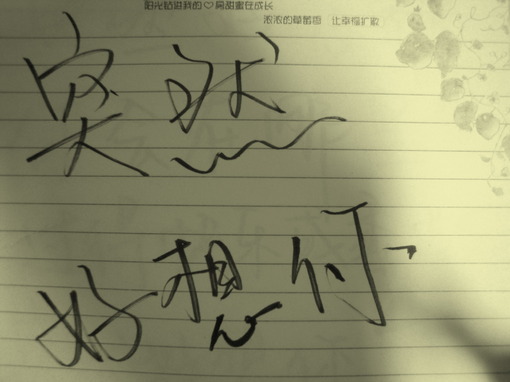 阳光钻进我的♡房甜蜜在成长
浓浓的草莓香 让幸福扩散
突然
好想你